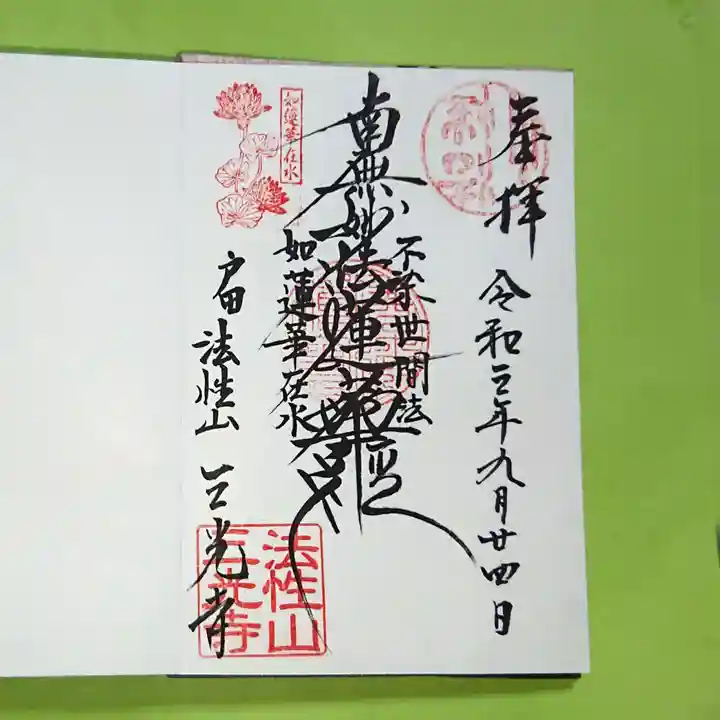 奉拝
令和三年九月廿四日
不染世間法
南無妙法蓮華経
如蓮華在水
如蓮華在水
戸田
法性山
三光寺
法性山
三光寺